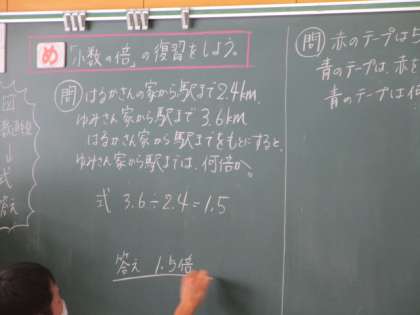 め
「小数の倍」の復習をしよう。
問 はるかさんの家から駅まで2.4km、
ゆみさん家から駅まで3.6km
はるかさん家から駅までをもとにすると、
ゆみさん家から駅までは、何倍か。
式 3.6÷2.4=1.5
答え 1.5倍
図
↓
式
答え
問 赤のテープは5
青のテープは、赤を
青のテープは何